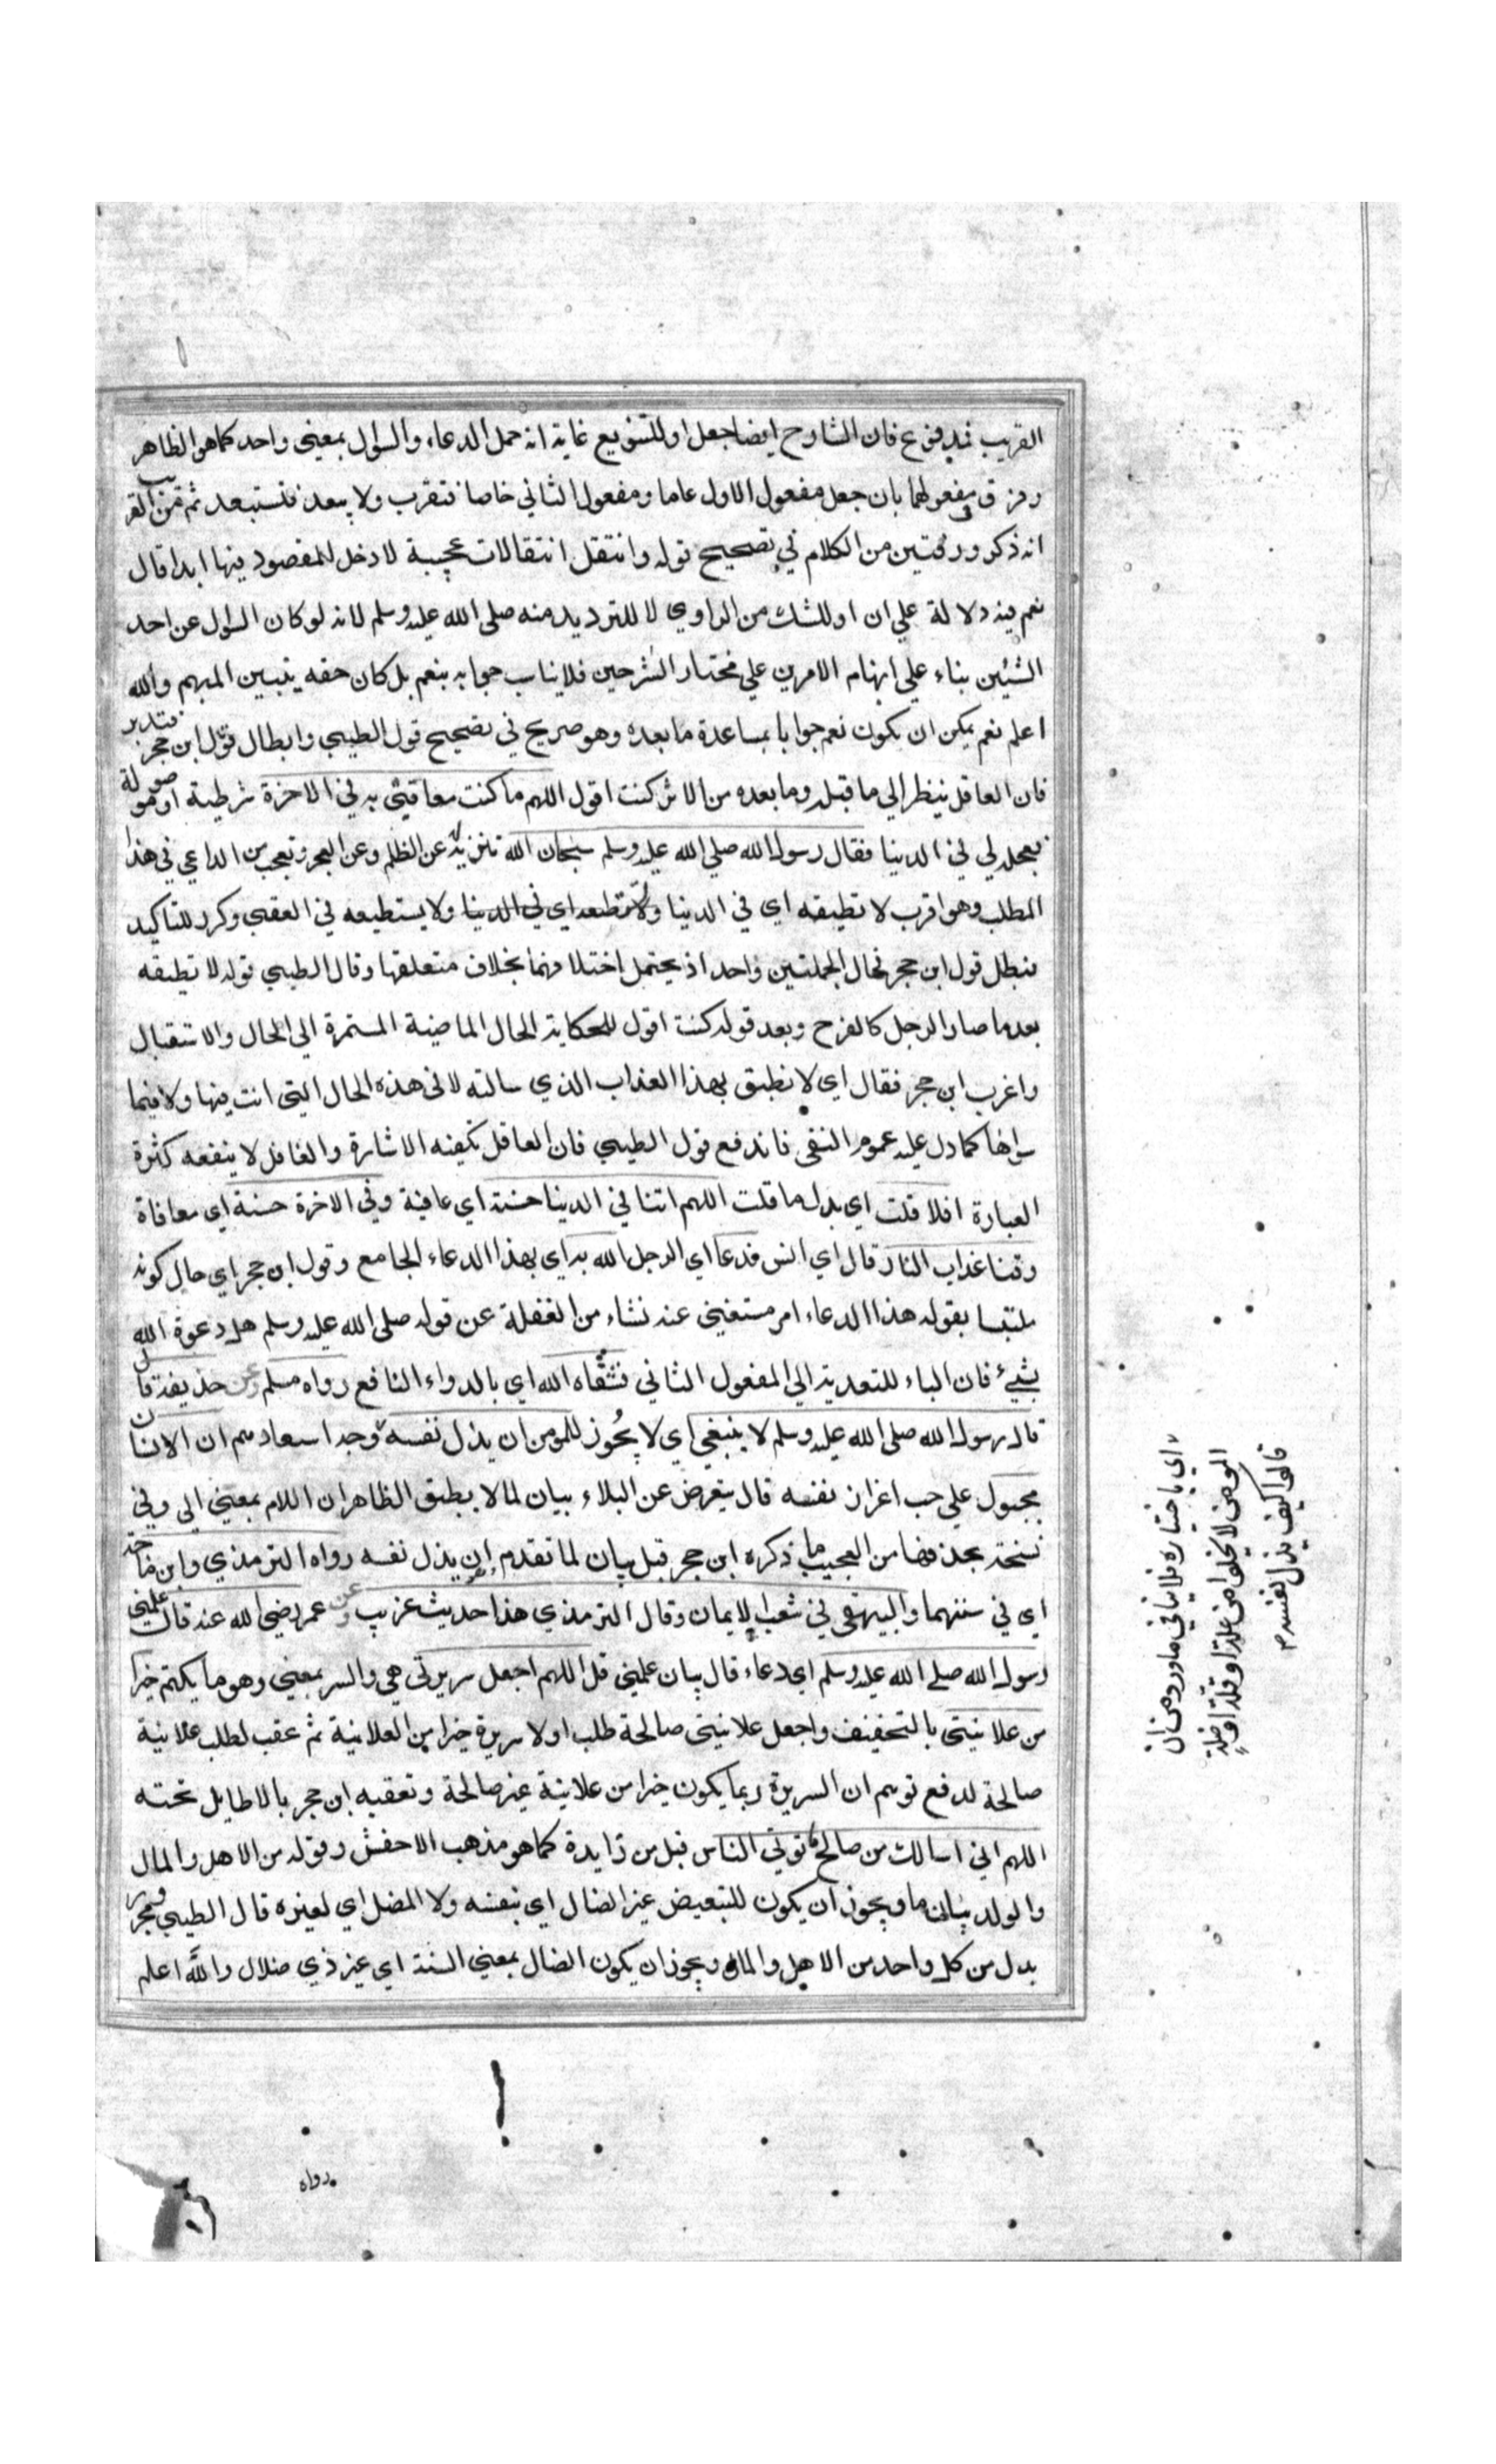 القريب فمدفوع فان الشارح ايضا جعل او للتنويع غاية انه حمل الدعاء والسوال بمعنى واحد كما هو الظاهر
وفرق مفعولهما بان جعل مفعول الاول عاما ومفعول الثاني خاصا فتقرب ولا يبعد فتستبعد ثم من القريب
انه ذكر ورقتين من الكلام في تصحيح قوله وانتقل انتقالات عجيبة لا دخل للمقصود فيها ابدا قال
نعم فيه دلالة على ان او للشك من الراوي لا للترديد منه صلى الله عليه وسلم لانه لو كان السوال عن احد
الشيئين بناء على ابهام الامرين على مختار الشرحين فلا يناسب جوابه بنعم بل كان حقه يتبيين المبهم والله
اعلم نعم يمكن ان يكون نعم جوابا بمساعدة ما بعده وهو صريح في تصحيح قول الطيبي وابطال قول ابن حجر فتدبر
فان العاقل ينظر الى ما قبله وما بعده من الاثر كنت اقول اللهم ما كنت معاقبي به في الاخرة شرطية او موصولة
فعجله لي في الدنيا فقال رسول الله صلى الله عليه وسلم سبحان الله تنزيه عن الظلم وعن العجز وتعجب من الداعي في هذا
المطلب وهو اقرب لا تطيقه اي في الدنيا ولا تستطيعه اي في الدنيا ولا يستطيعه في العقبى وكرر للتاكيد
فبطل قول ابن حجر فحال الجملتين واحد اذ يحتمل اختلافهما بخلاف متعلقها وقال الطيبي قوله لا تطيقه
بعد ما صار الرجل كالفرخ وبعد قوله كنت اقول لحكاية الحال الماضية المستمرة الى الحال والاستقبال
واغرب ابن حجر فقال اي لا تطيق بهذا العذاب الذي سالته لا في هذه الحال التي انت فيها ولا فيما
سواها كما دل عليه عموم النفي فاندفع قول الطيبي فان العاقل تكفيه الاشارة والغافل لا ينفعه كثرة
العبارة افلا قلت اي بدل ما قلت اللهم اتنا في الدنيا حسنة اي عافية وفي الاخرة حسنة اي معافاة
وقنا عذاب النار قال اي انس فدعا اي الرجل الله به اي بهذا الدعاء الجامع وقول ابن حجر اي حال كونه
ملتبسا بقوله هذا الدعاء امر مستغنى عنه نشاء من الغفلة عن قوله صلى الله عليه وسلم هل دعوة الله
بشيء فان الباء للتعدية الى المفعول الثاني فشفاه الله اي بالدواء النافع رواه مسلم وعن حذيفة قال
قال رسول الله صلى الله عليه وسلم لا ينبغي اي لا يجوز للمومن ان يذل نفسه وجه استعادهم ان الانسان
مجبول على حب اعزاز نفسه قال يتعرض عن البلاء بيان لما لا يطيق الظاهر ان اللام بمعنى الى وفي
نسخة بحذفها من العجيب ما ذكره ابن حجر قبل بيان لما تقدم ان يذل نفسه رواه الترمذي وابن ماجه
اي في سننهما والبيهقي في شعب الايمان وقال الترمذي هذا حديث غريب وعن عمر رضي الله عنه قال علمني
رسول الله صلى الله عليه وسلم اي دعاء قال بيان علمني قل اللهم اجعل سريرتي هي والسر بمعنى وهو ما يكتم خيرا
من علانيتي بالتخفيف واجعل علانيتي صالحة طلب اولا سريرة خيرا من العلانية ثم عقب لطلب علانية
صالحة لدفع توهم ان السريرة ربما يكون خيرا من علانية غير صالحة وتعقبه ابن حجر بالاطايل تحته
اللهم اني اسالك من صالح ما توتي الناس قيل من زايدة كما هو مذهب الاخفش وقوله من الاهل والمال
والولد بيان ما ويجوز ان يكون للتبعيض غير الضال اي بنفسه ولا المضل اي لغيره قال الطيبي مجرور
بدل من كل واحد من الاهل والمال ويجوز ان يكون الضال بمعنى النسبة اي غير ذي ضلال والله اعلم
رواه
اي باختياره فلا ينافي ما ورد من ان
المومن لا يخلوا من علة او قلة او ذلة
قالوا كيف يذل نفسه م